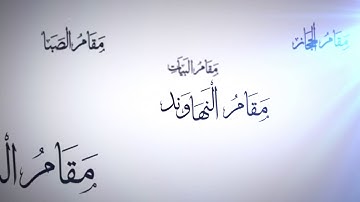 مَقَامُ الْحِجَاز
مَقَامُ الصَّبَا
مَقَامُ البَيَات
مَقَامُ الْنَهَاوَند
مَقَامُ